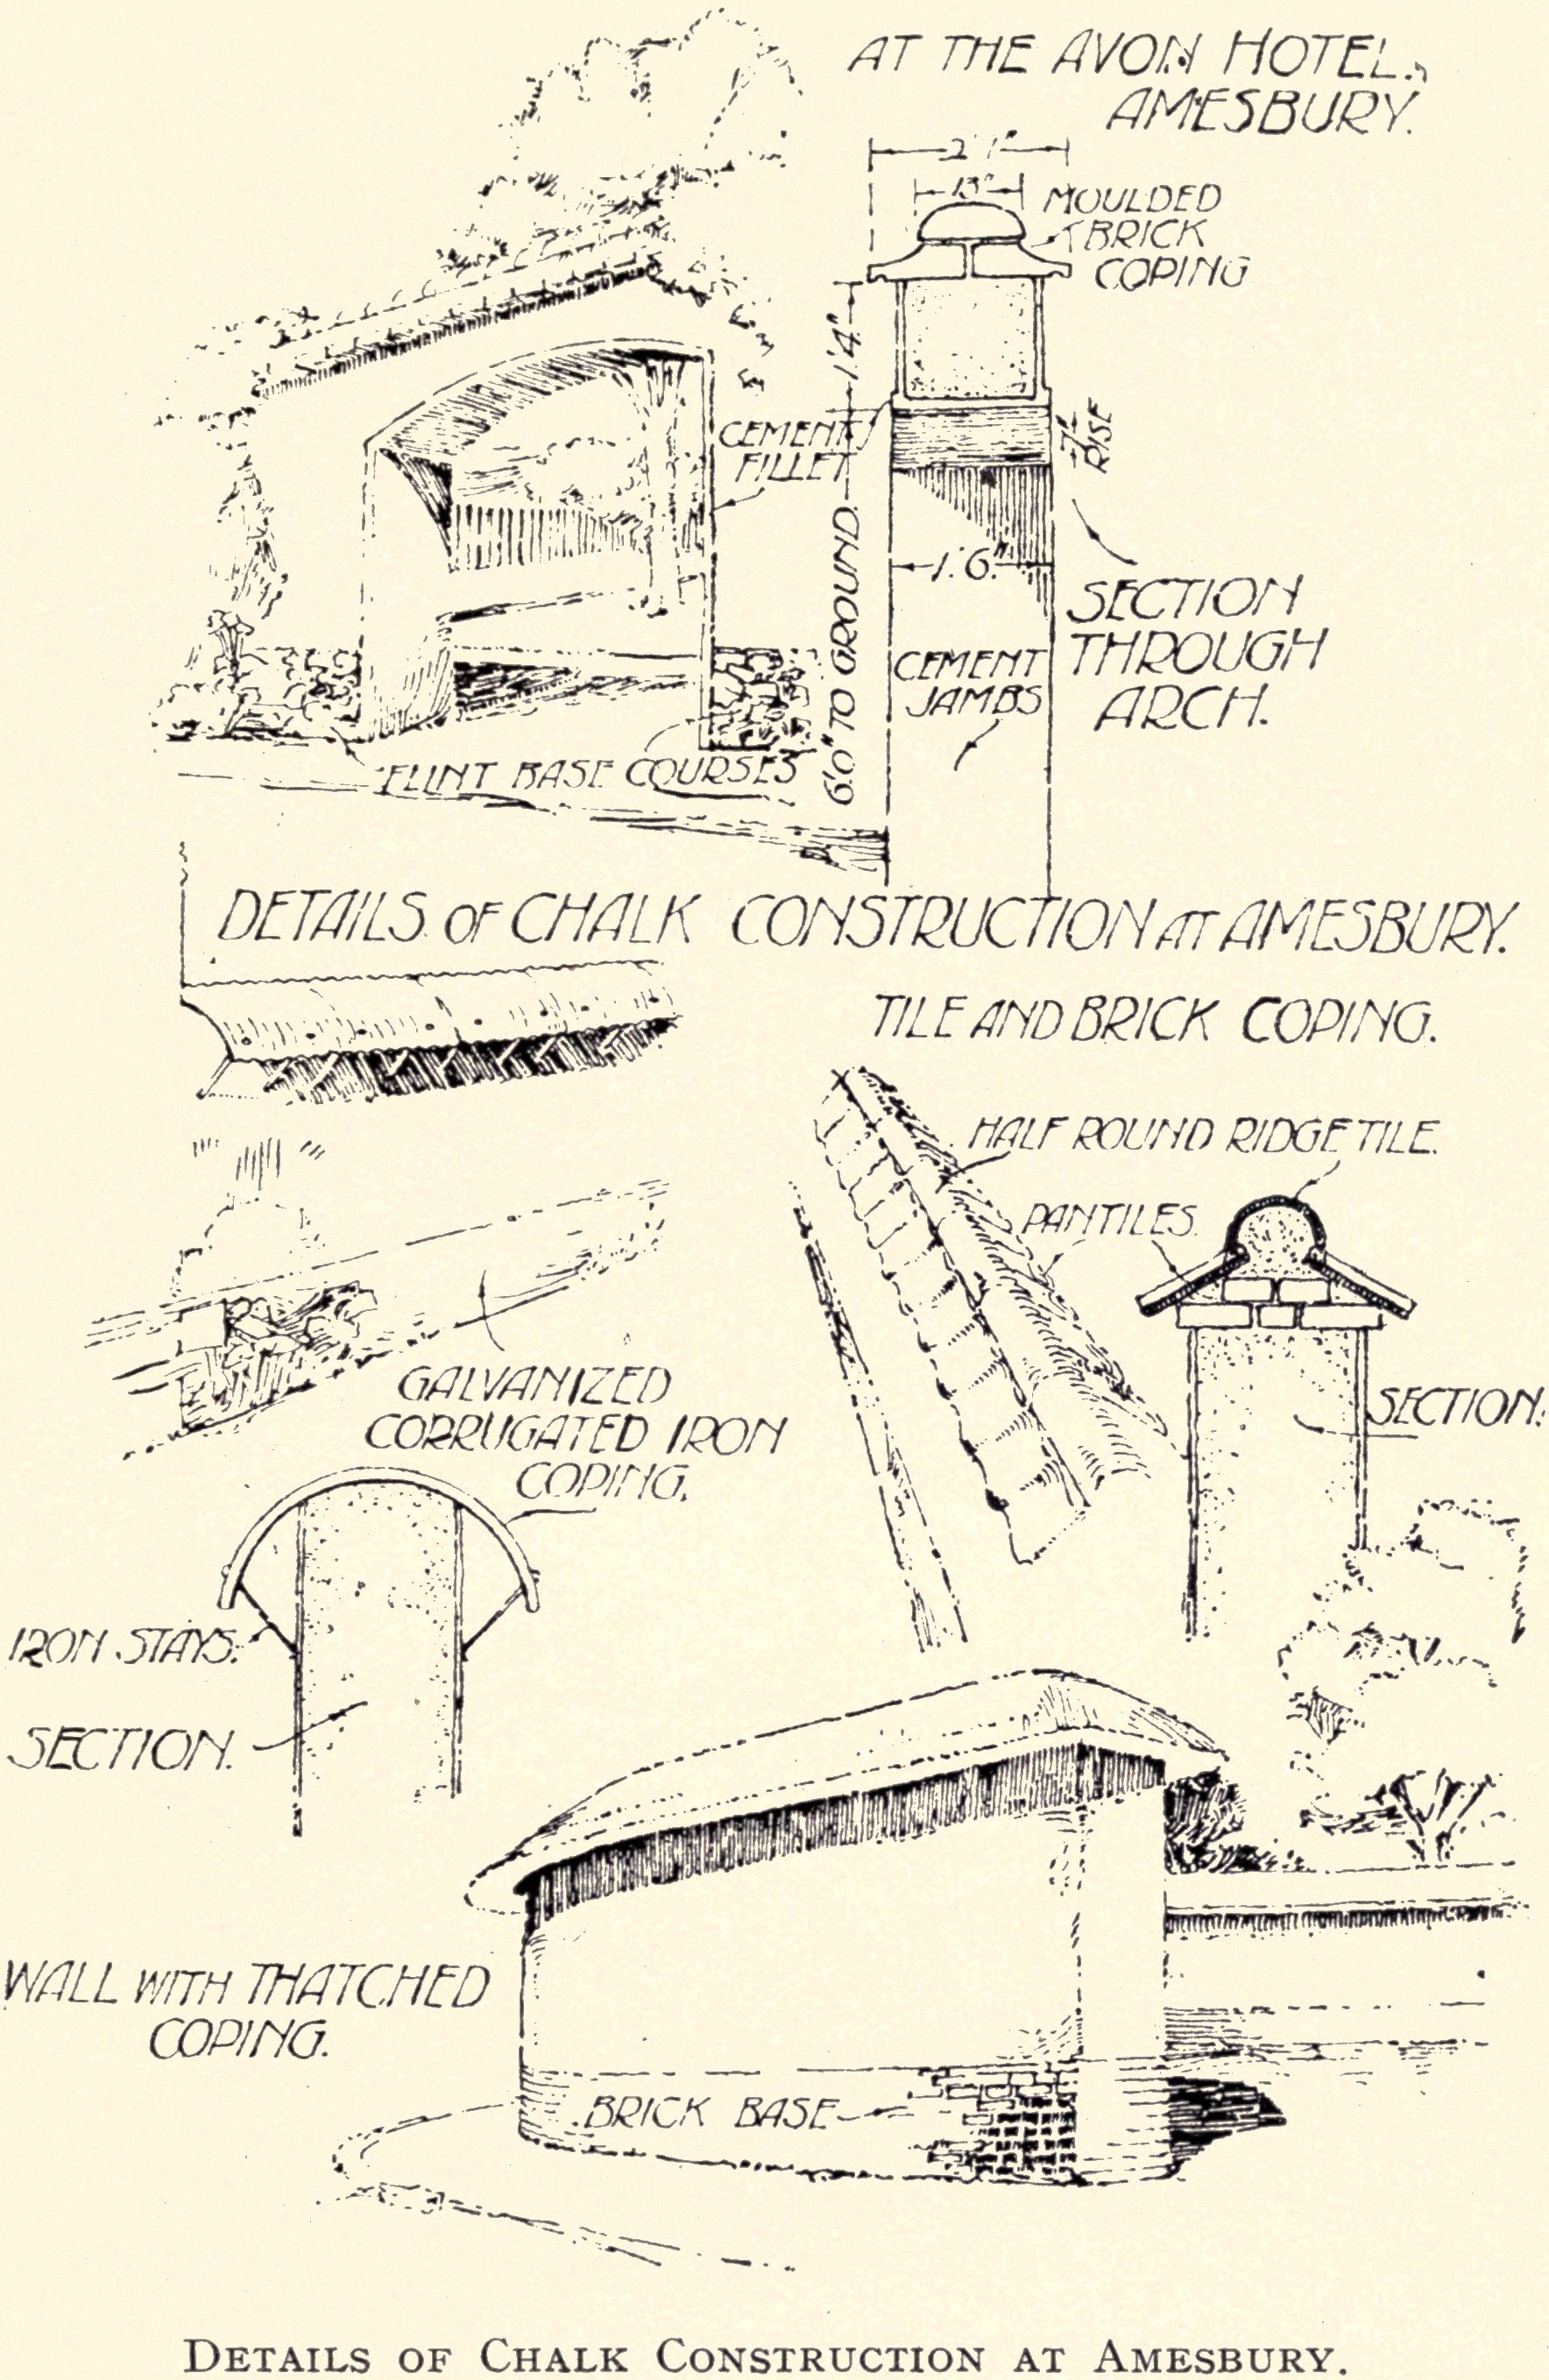 AT THE AVON HOTEL,
AMESBURY.
2'1"
13"
MOULDED
BRICK
COPING
1'.4"
CEMENT
FILLET
7"
RISE
1'.6"
6'.0" TO GROUND.
SECTION
THROUGH
ARCH.
CEMENT
JAMBS
FLINT BASE COURSES
DETAILS OF CHALK CONSTRUCTION AT AMESBURY.
TILE AND BRICK COPING.
HALF ROUND RIDGE TILE.
PANTILES.
GALVANIZED
CORRUGATED IRON
COPING.
SECTION.
IRON STAYS.
SECTION.
WALL WITH THATCHED
COPING.
BRICK BASE
DETAILS OF CHALK CONSTRUCTION AT AMESBURY.